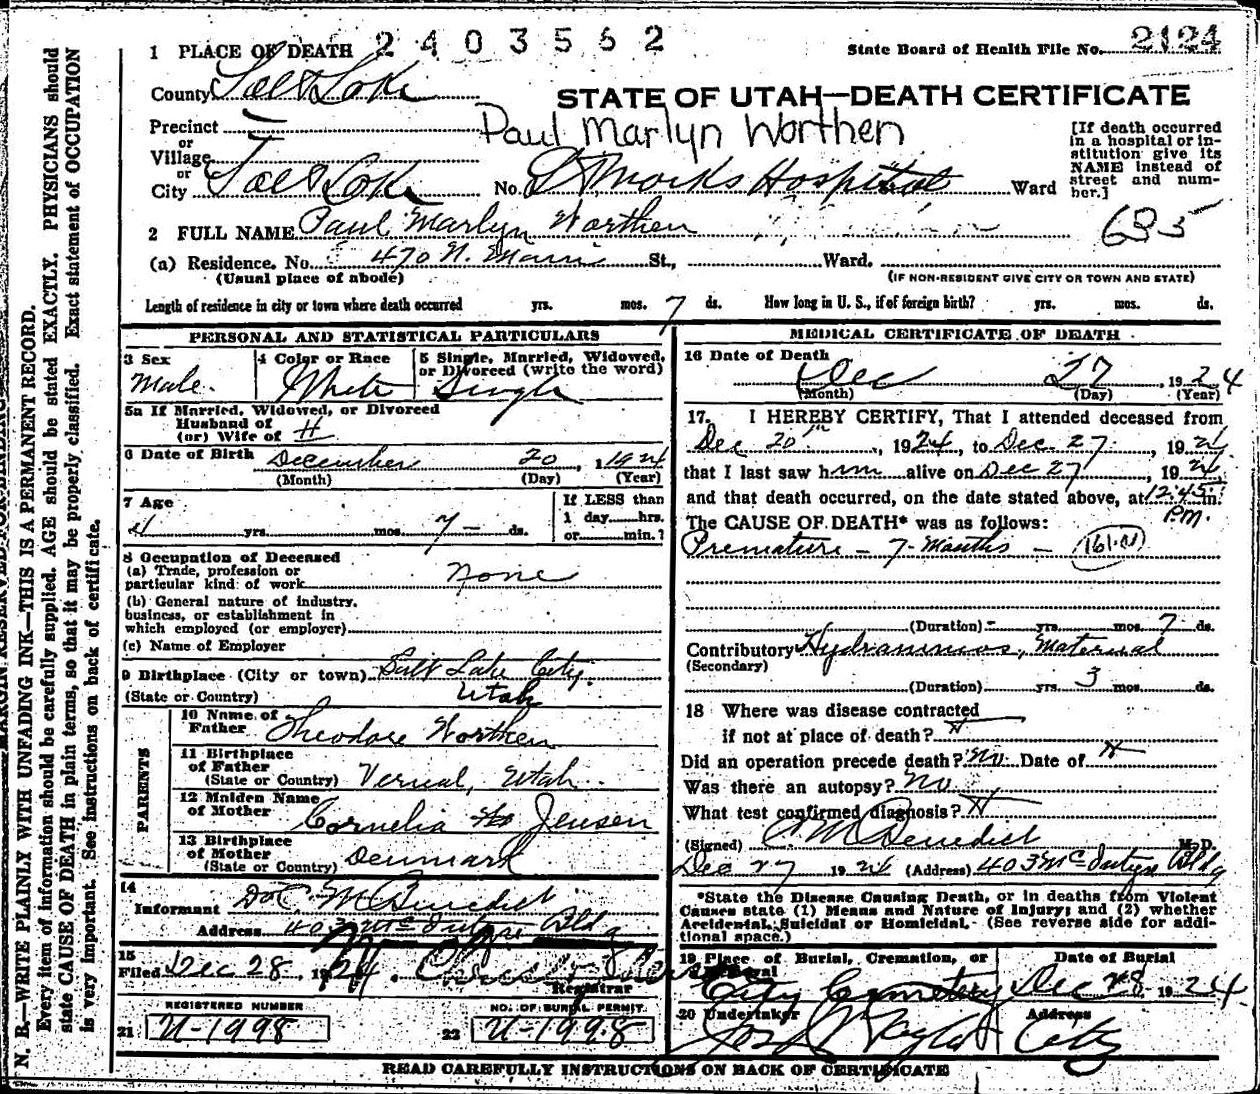 1 PLACE OF DEATH 2403562
State Board of Health File No. 2124
County Salt Lake
STATE OF UTAH—DEATH CERTIFICATE
Precinct
Paul Marlyn Worthen
or
Village
or
City Salt Lake No. St Marks Hospital Ward
[If death occurred
in a hospital or in-
stitution give its
NAME instead of
street and num-
ber.]
2 FULL NAME Paul Marlyn Worthen
635
(a) Residence. No. 470 N. Main St., Ward.
(Usual place of abode) (IF NON-RESIDENT GIVE CITY OR TOWN AND STATE)
Length of residence in city or town where death occurred yrs. mos. 7 ds. How long in U. S., if of foreign birth? yrs. mos. ds.
PERSONAL AND STATISTICAL PARTICULARS
3 Sex
Male.
4 Color or Race
White
5 Single, Married, Widowed,
or Divorced (write the word)
Single
5a If Married, Widowed, or Divorced
Husband of
(or) Wife of
6 Date of Birth December 20, 1924
(Month) (Day) (Year)
7 Age
yrs. mos. 7 ds.
If LESS than
1 day hrs.
or min.?
8 Occupation of Deceased
(a) Trade, profession or
particular kind of work None
(b) General nature of industry,
business, or establishment in
which employed (or employer)
(c) Name of Employer
9 Birthplace (City or town) Salt Lake City.
(State or Country) Utah
PARENTS
10 Name of
Father Theodore Worthen
11 Birthplace
of Father
(State or Country) Vernal, Utah.
12 Maiden Name
of Mother Cornelia Jensen
13 Birthplace
of Mother
(State or Country) Denmark
14
Informant Dr C. M Benedict
Address 403 McIntyre Bldg
15
Filed Dec 28, 1924.
Registrar
REGISTERED NUMBER
21 U-1998
NO. OF BURIAL PERMIT.
22 U-1998
MEDICAL CERTIFICATE OF DEATH
16 Date of Death
Dec 27, 1924
(Month) (Day) (Year)
17. I HEREBY CERTIFY, That I attended deceased from
Dec 20th, 1924, to Dec 27, 1924
that I last saw him alive on Dec 27, 1924
and that death occurred, on the date stated above, at 12:45 m.
P.M.
The CAUSE OF DEATH* was as follows:
Premature - 7-Months - (161-A)
(Duration) yrs. mos. 7 ds.
Contributory Hydramnios, Maternal
(Secondary)
(Duration) yrs. 3 mos. ds.
18 Where was disease contracted
if not at place of death?
Did an operation precede death? No Date of
Was there an autopsy? No
What test confirmed diagnosis?
(Signed) C. M Benedict M.D.
Dec 27 1924 (Address) 403 McIntyre Bldg
*State the Disease Causing Death, or in deaths from Violent
Causes state (1) Means and Nature of Injury; and (2) whether
Accidental, Suicidal or Homicidal. (See reverse side for addi-
tional space.)
19 Place of Burial, Cremation, or
Removal
City Cemetery
Date of Burial
Dec 28 1924.
20 Undertaker
Jos Taylor
Address
City
READ CAREFULLY INSTRUCTIONS ON BACK OF CERTIFICATE
MARGIN RESERVED FOR BINDING
N. B.—WRITE PLAINLY WITH UNFADING INK—THIS IS A PERMANENT RECORD.
Every item of information should be carefully supplied. AGE should be stated EXACTLY. PHYSICIANS should
state CAUSE OF DEATH in plain terms, so that it may be properly classified. Exact statement of OCCUPATION
is very important. See instructions on back of certificate.